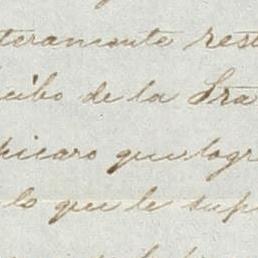 teramente rest
cibo de la Sra
picaro que logr
lo que le supl